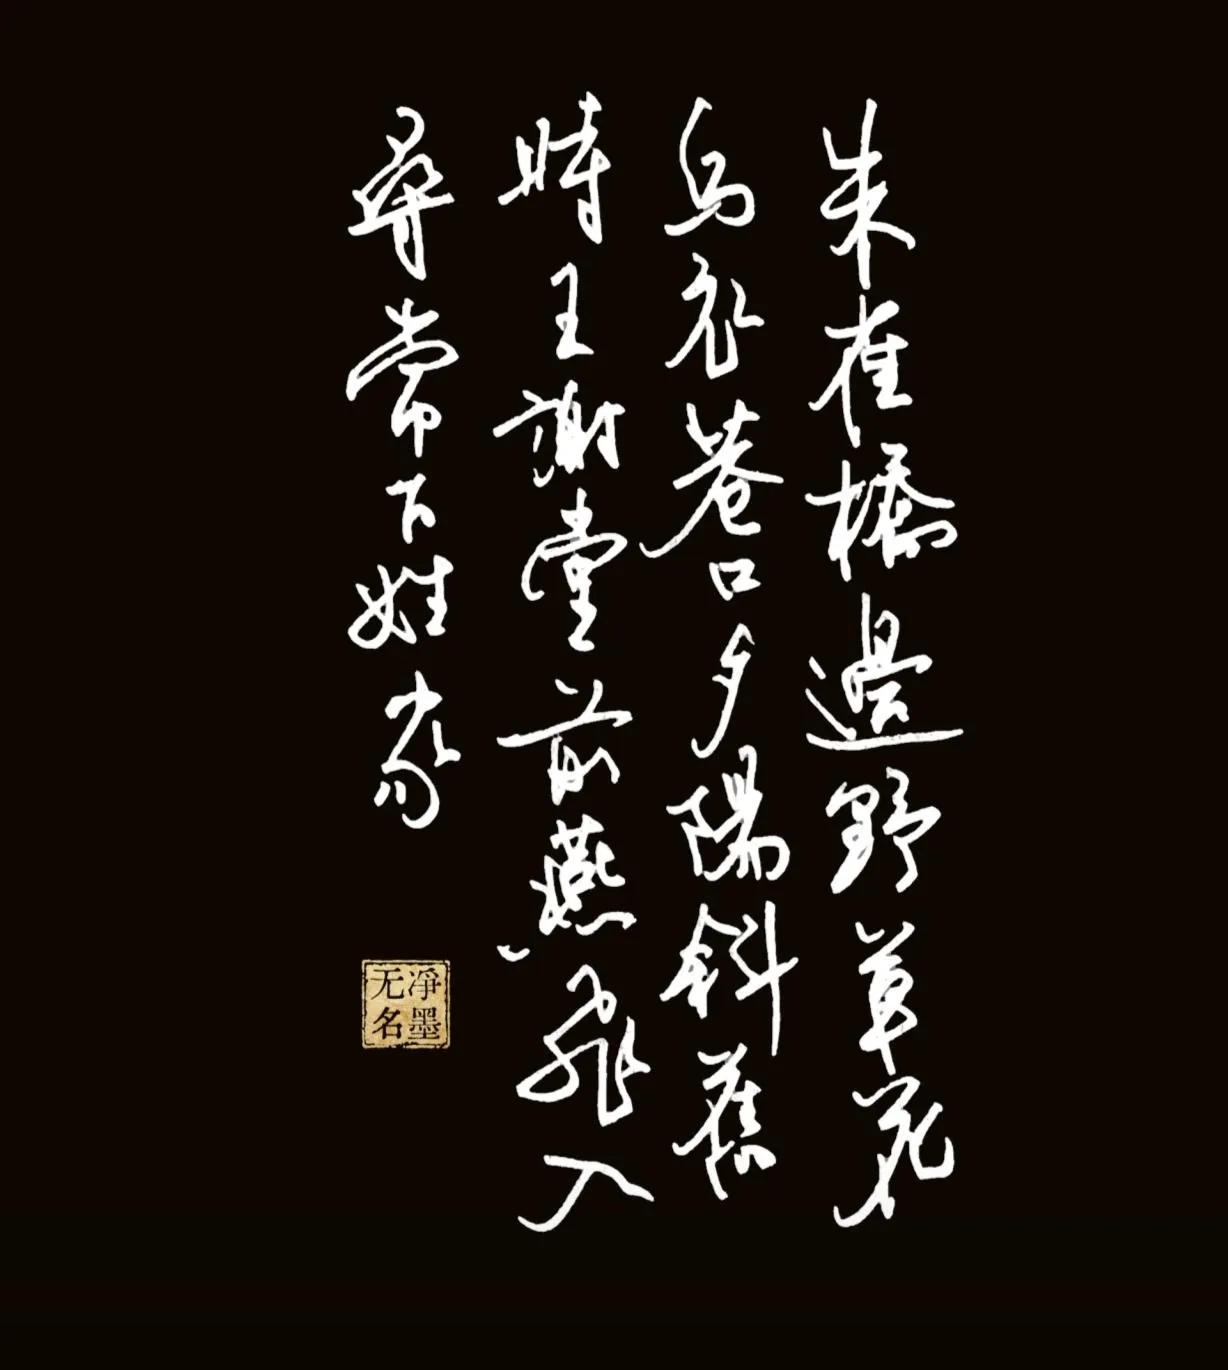 朱雀橋邊野草花
烏衣巷口夕陽斜舊
時王謝堂前燕飛入
尋常百姓家
淨墨
无名